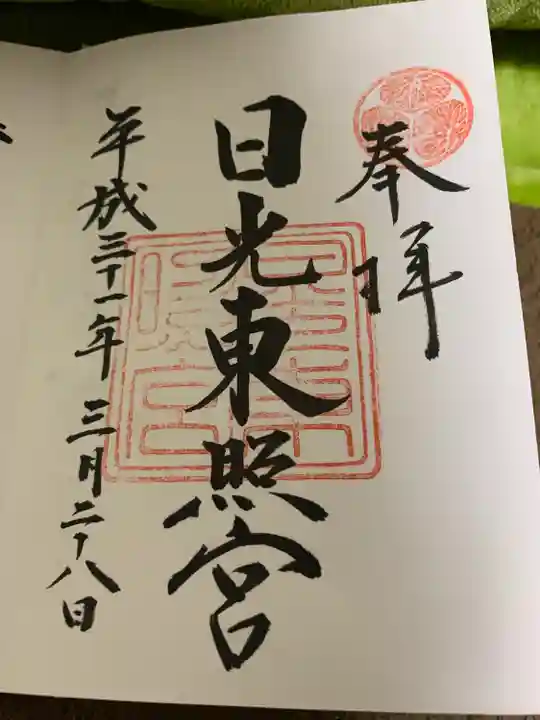 奉拝
日光東照宮
平成三十一年三月二十八日